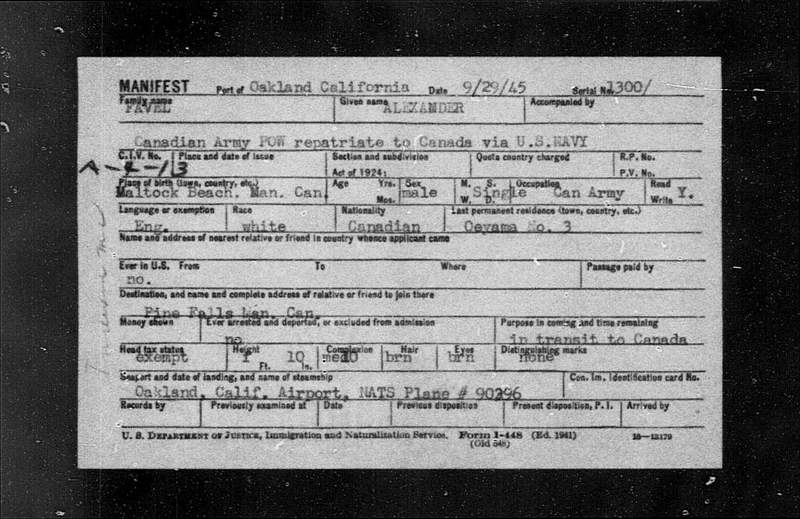 MANIFEST Port of Oakland California Date 9/29/45 Serial No. 1300/
Family name Given name Accompanied by
FAVEL ALEXANDER
Canadian Army POW repatriate to Canada via U.S.NAVY
C.I.V. No. Place and date of issue Section and subdivision Quota country charged R.P. No.
A-4-13 Act of 1924: P.V. No.
Place of birth (town, country, etc.) Age Yrs. Sex M. S. Occupation Read
Maltock Beach. Man. Can. Mos. male W. D. Single Can Army Write Y.
Language or exemption Race Nationality Last permanent residence (town, country, etc.)
Eng. white Canadian Oeyama No. 3
Name and address of nearest relative or friend in country whence applicant came
Ever in U.S. From To Where Passage paid by
no.
Destination, and name and complete address of relative or friend to join there
Pine Falls Man. Can.
Money shown Ever arrested and deported, or excluded from admission Purpose in coming and time remaining
no in transit to Canada
Head tax status Height Complexion Hair Eyes Distinguishing marks
exempt Ft. 10 In. med brn brn none
Seaport and date of landing, and name of steamship Con. Im. Identification card No.
Oakland, Calif. Airport, NATS Plane # 90396
Records by Previously examined at Date Previous disposition Present disposition, P.I. Arrived by
U. S. DEPARTMENT OF JUSTICE, Immigration and Naturalization Service. Form I-448 (Ed. 1941) 16—12179
(Old 548)